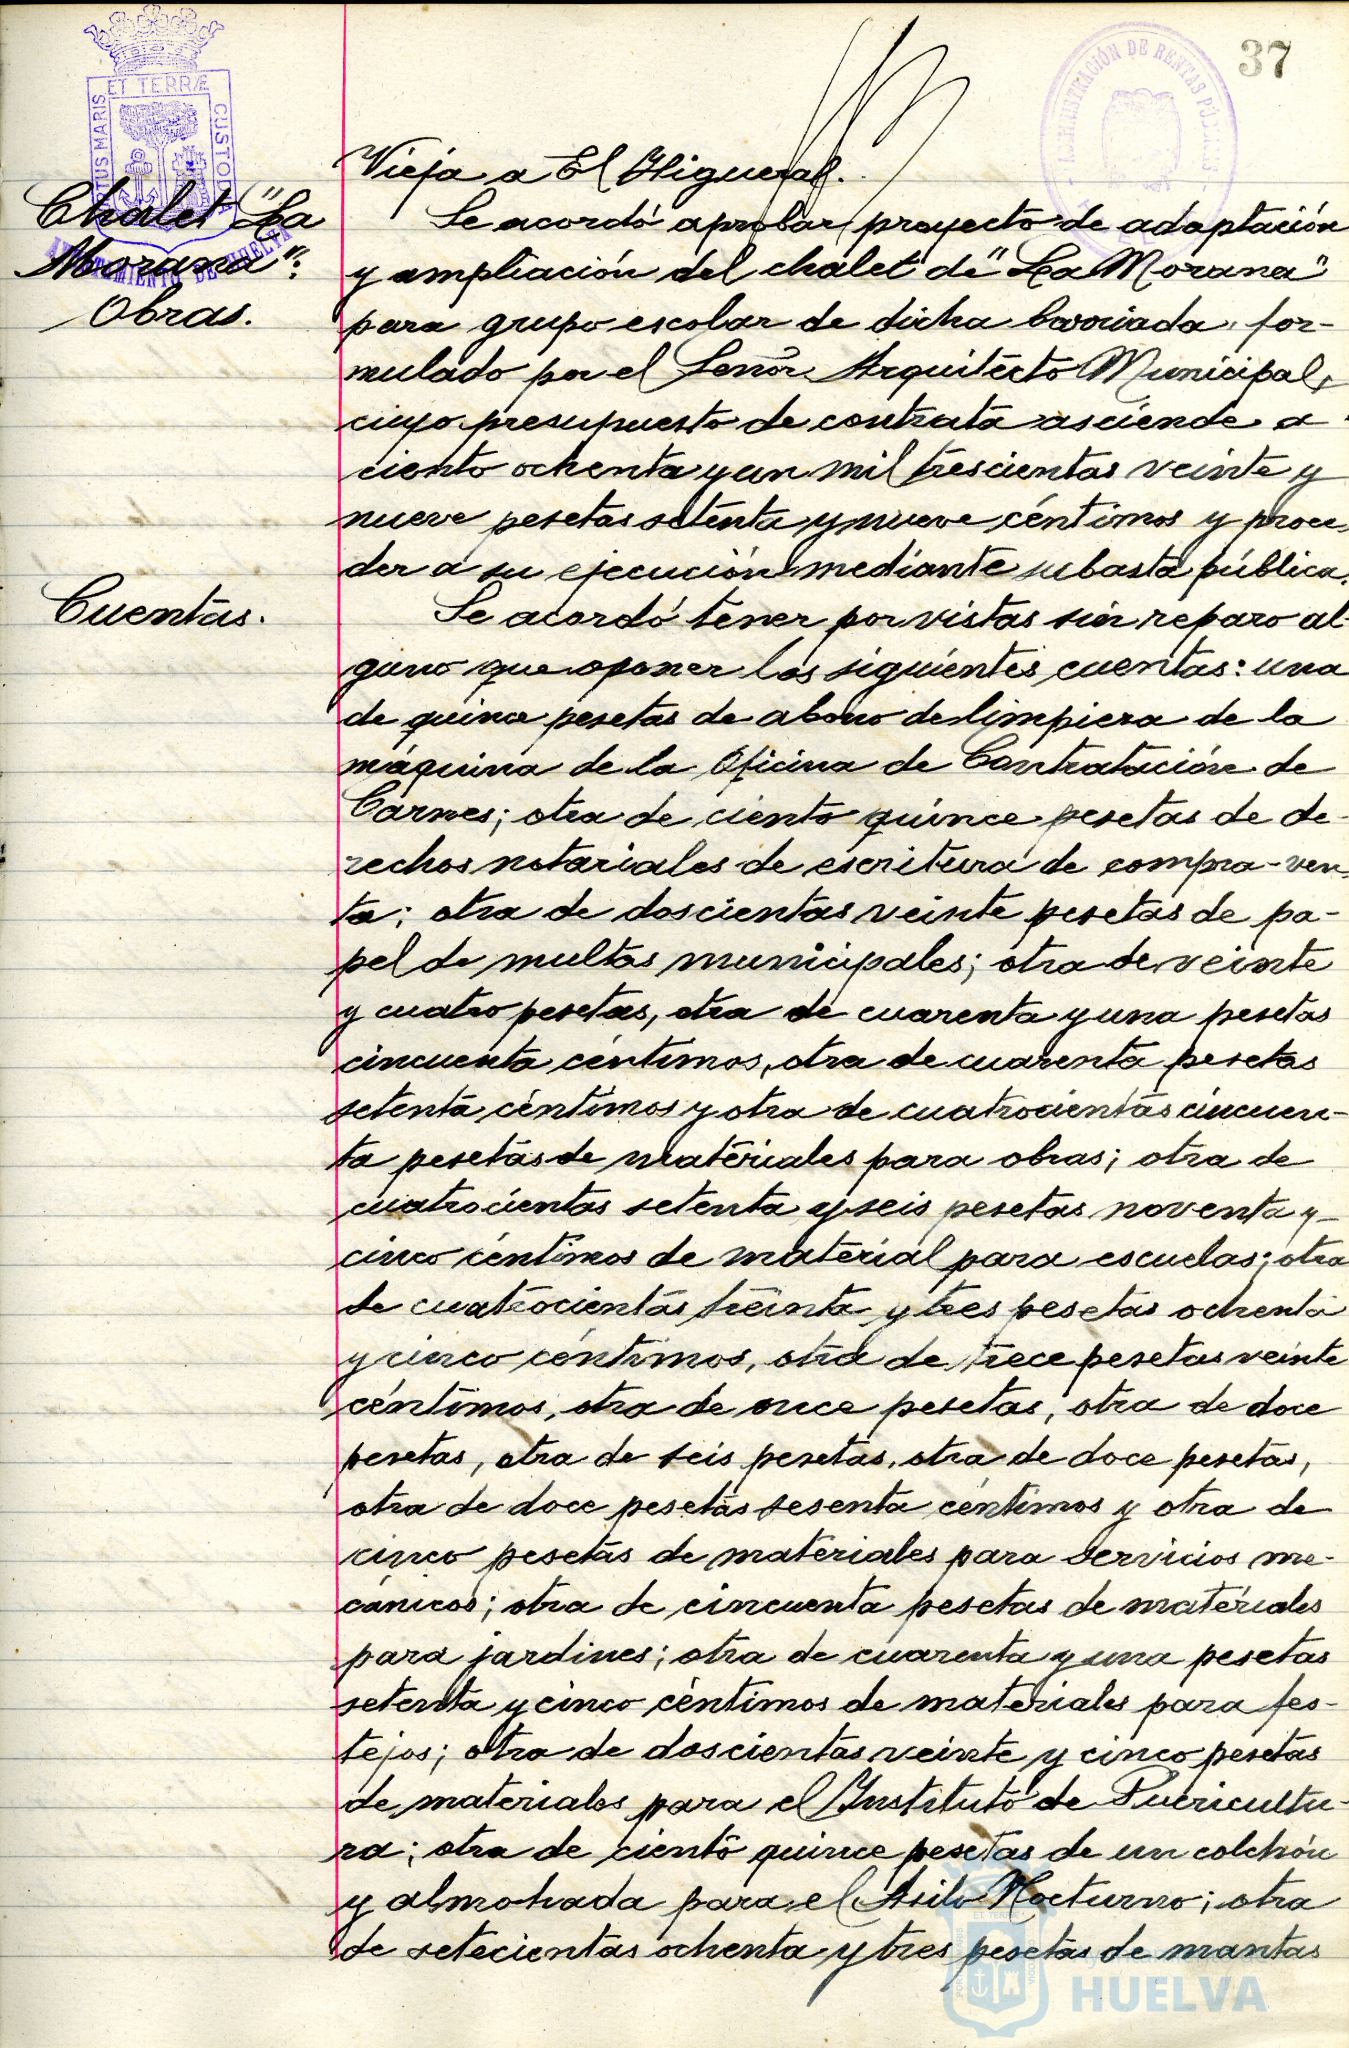 37
PORTUS MARIS ET TERRÆ CUSTODIA
AYUNTAMIENTO DE HUELVA
ADMINISTRACIÓN DE RENTAS PÚBLICAS
Vieja a El Higueral.
Chalet "La
Morana".
Obras.
Se acordó aprobar proyecto de adaptación
y ampliación del chalet de "La Morana"
para grupo escolar de dicha barriada, for-
mulado por el Señor Arquitecto Municipal,
cuyo presupuesto de contrata asciende a
ciento ochenta y un mil trescientas veinte y
nueve pesetas setenta y nueve céntimos y proce-
der a su ejecución mediante subasta pública.
Cuentas.
Se acordó tener por vistas sin reparo al-
guno que oponer las siguientes cuentas: una
de quince pesetas de abono de limpieza de la
máquina de la Oficina de Contratación de
Carnes; otra de ciento quince pesetas de de-
rechos notariales de escritura de compra-ven-
ta; otra de doscientas veinte pesetas de pa-
pel de multas municipales; otra de veinte
y cuatro pesetas, otra de cuarenta y una pesetas
cincuenta céntimos, otra de cuarenta pesetas
setenta céntimos y otra de cuatrocientas cincuen-
ta pesetas de materiales para obras; otra de
cuatrocientas setenta y seis pesetas noventa y
cinco céntimos de material para escuelas; otra
de cuatrocientas treinta y tres pesetas ochenta
y cinco céntimos, otra de trece pesetas veinte
céntimos, otra de once pesetas, otra de doce
pesetas, otra de seis pesetas, otra de doce pesetas,
otra de doce pesetas sesenta céntimos y otra de
cinco pesetas de materiales para servicios me-
cánicos; otra de cincuenta pesetas de materiales
para jardines; otra de cuarenta y una pesetas
setenta y cinco céntimos de materiales para fes-
tejos; otra de doscientas veinte y cinco pesetas
de materiales para el Instituto de Puericultu-
ra; otra de ciento quince pesetas de un colchón
y almohada para el Asilo Nocturno; otra
de setecientas ochenta y tres pesetas de mantas
Ayuntamiento de
HUELVA